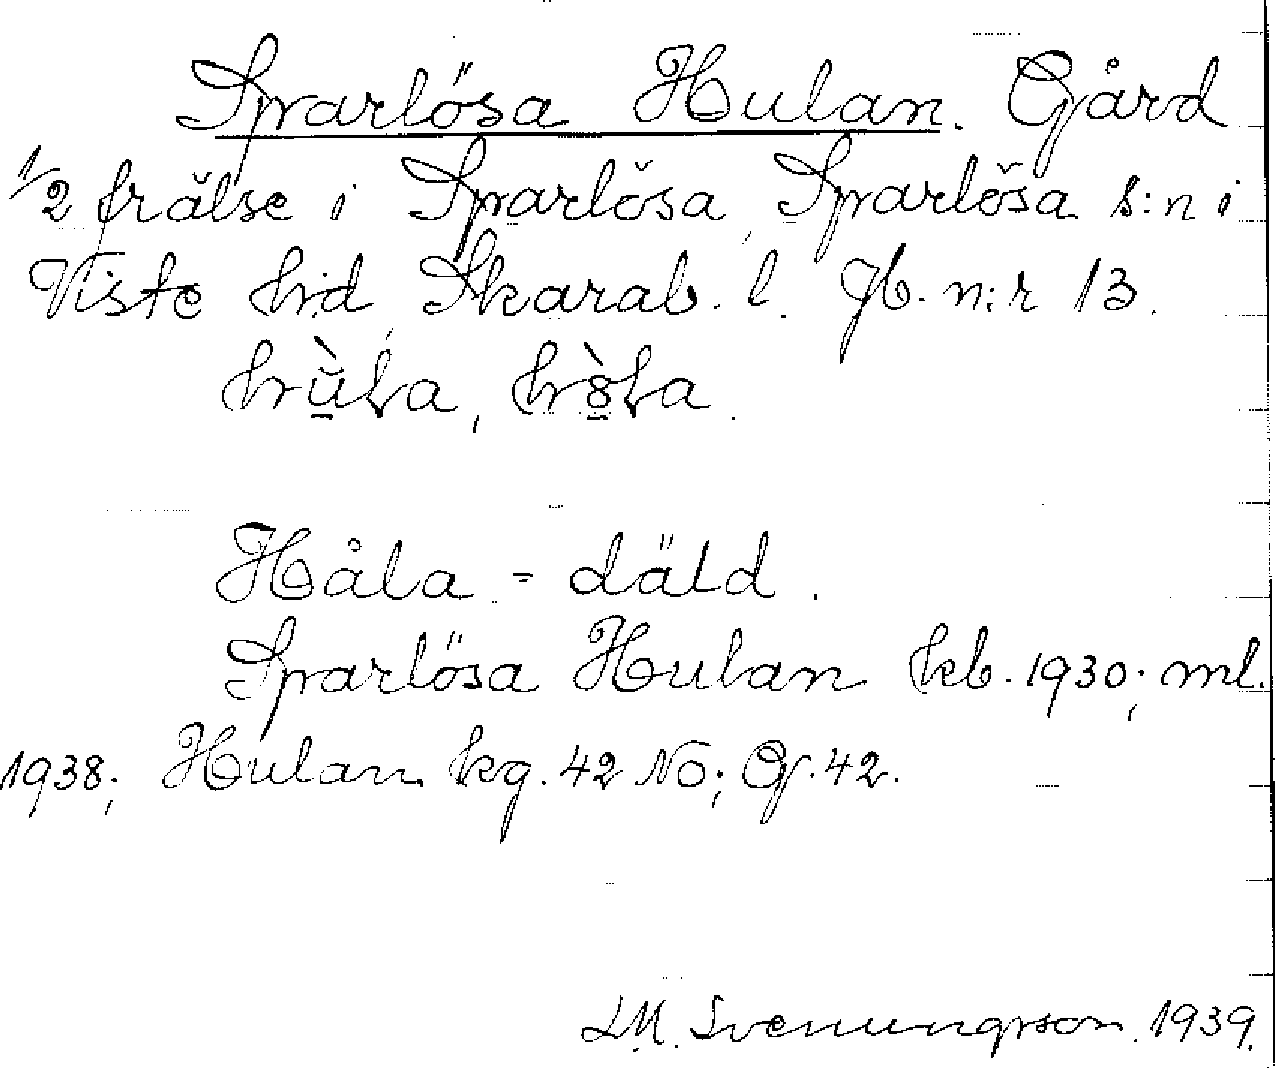 Sparlösa Hulan. Gård
1/2 frälse i Sparlösa, Sparlösa s:n i
Viste hd, Skarab. l. Jb. n:r 13.
Håla - däld.
Sparlösa Hulan kb. 1930; ml.
1938; Hulan kg. 42 NO; Gf. 42.
L.M. Svenungsson. 1939.